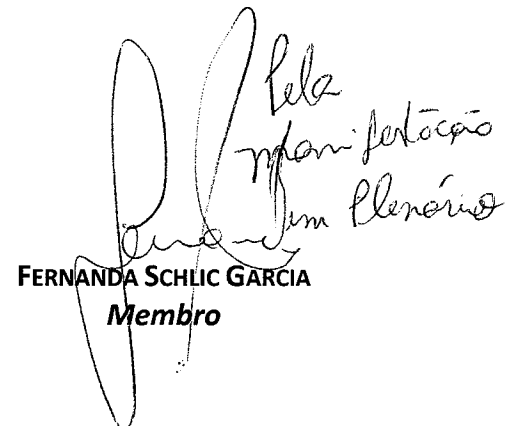 Pela
manifestação
em Plenário
FERNANDA SCHLIC GARCIA
Membro